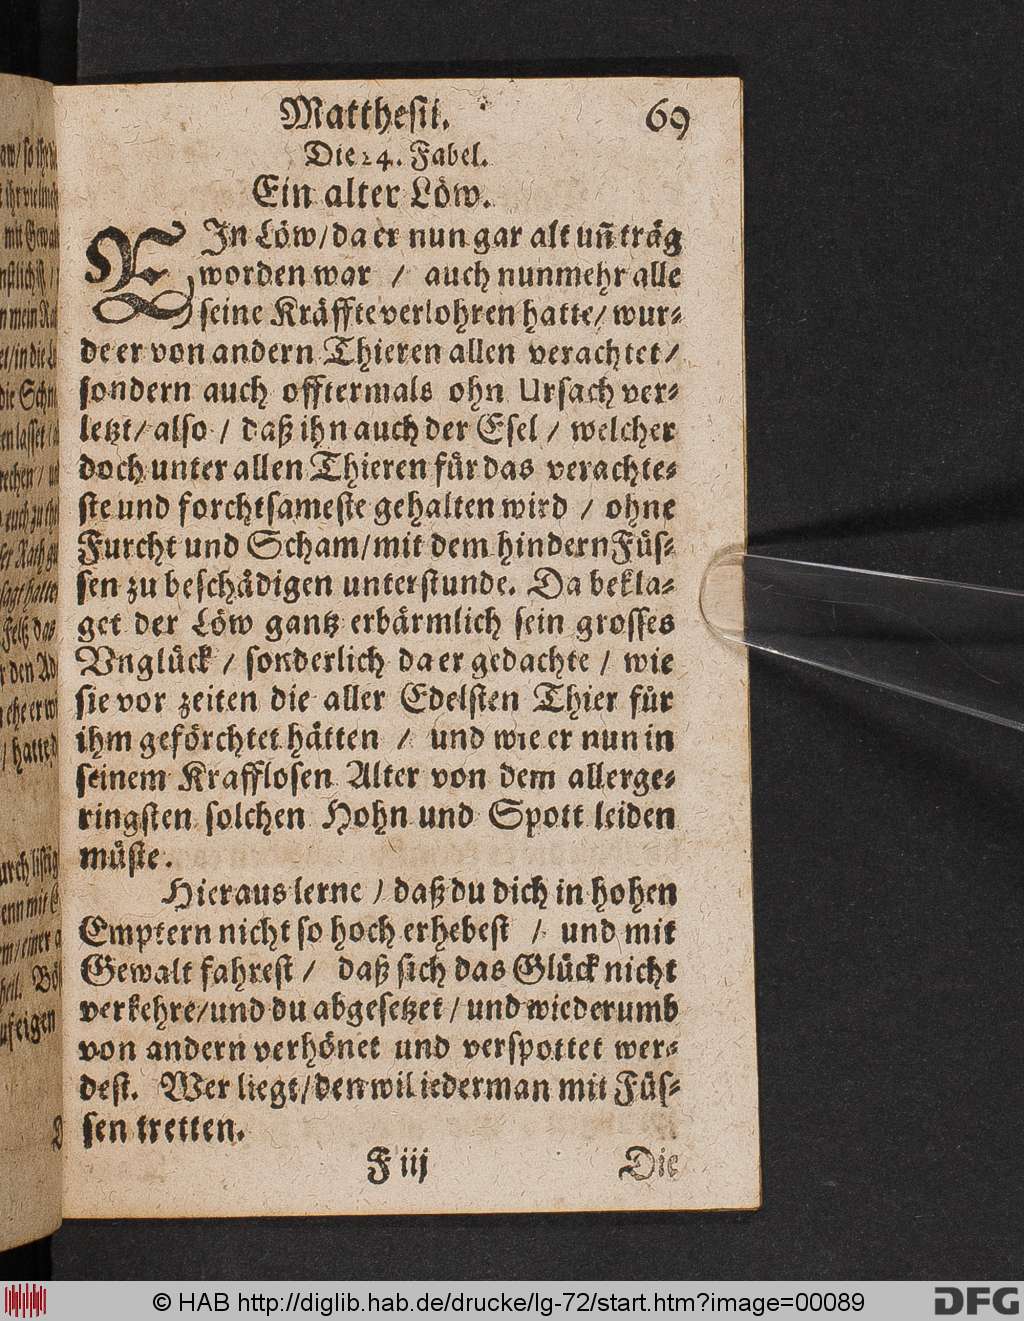 Matthesii. 69
Die 24. Fabel.
Ein alter Löw.
EIn Löw/ da er nun gar alt uñ träg
worden war / auch nunmehr alle
seine Kräffte verlohren hatte/ wur-
de er von andern Thieren allen verachtet/
sondern auch offtermals ohn Ursach ver-
letzt/ also / daß ihn auch der Esel / welcher
doch unter allen Thieren für das verachte-
ste und forchtsameste gehalten wird / ohne
Furcht und Scham/ mit dem hindern Füs-
sen zu beschädigen unterstunde. Da bekla-
get der Löw gantz erbärmlich sein grosses
Vnglück / sonderlich da er gedachte / wie
sie vor zeiten die aller Edelsten Thier für
ihm geförchtet hätten / und wie er nun in
seinem Krafflosen Alter von dem allerge-
ringsten solchen Hohn und Spott leiden
müste.
Hieraus lerne / daß du dich in hohen
Emptern nicht so hoch erhebest / und mit
Gewalt fahrest / daß sich das Glück nicht
verkehre/ und du abgesetzet / und wiederumb
von andern verhönet und verspottet wer-
dest. Wer liegt/ den wil iederman mit Füs-
sen tretten.
F iij Die
© HAB http://diglib.hab.de/drucke/lg-72/start.htm?image=00089
DFG